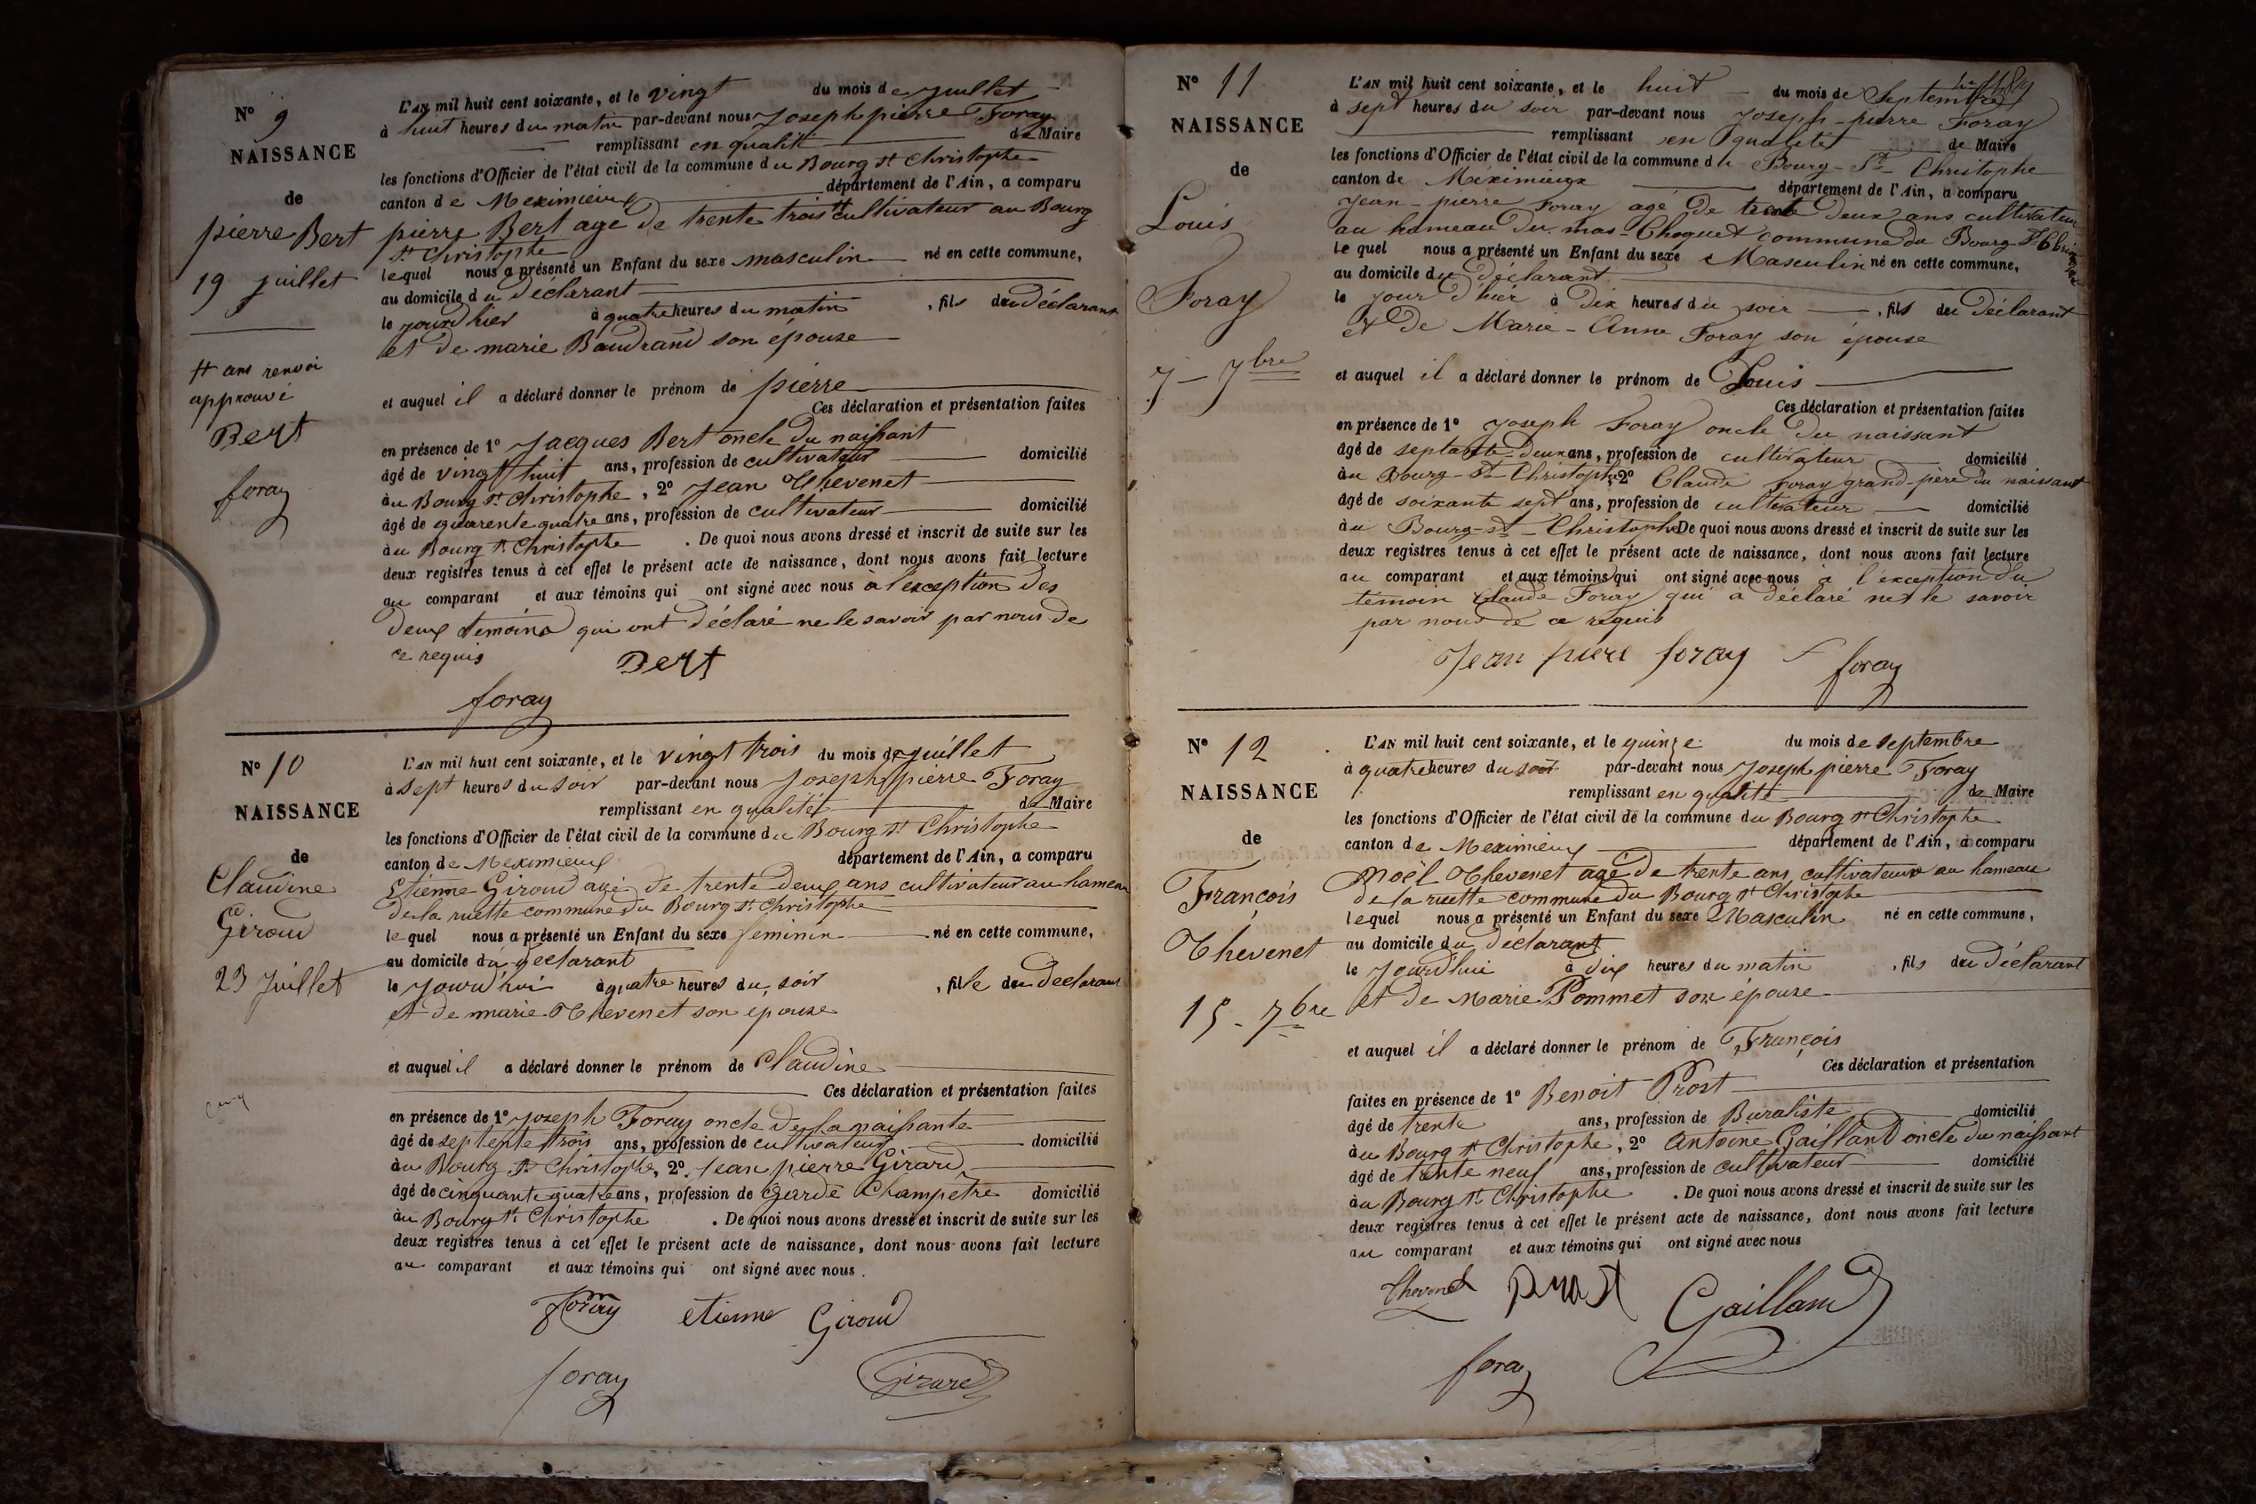 N° 9
NAISSANCE
de
pierre Bert
19 juillet
# ans renvoi
approuvé
Bert
foray
L'AN mil huit cent soixante, et le vingt du mois de juillet
à huit heures du matin par-devant nous Joseph pierre Foray
remplissant en qualité de Maire
les fonctions d'Officier de l'état civil de la commune du Bourg St Christophe
canton de Meximieux département de l'Ain, a comparu
pierre Bert agé de trente trois # cultivateur au Bourg
St Christophe
lequel nous a présenté un Enfant du sexe masculin né en cette commune,
au domicile du déclarant
le jourd'hier à quatre heures du matin, fils du déclarant
et de marie Baudrand son épouse
et auquel il a déclaré donner le prénom de pierre
Ces déclaration et présentation faites
en présence de 1° Jacques Bert oncle du naissant
âgé de vingt huit ans, profession de cultivateur domicilié
au Bourg St Christophe, 2° Jean Thevenet
âgé de quarente quatre ans, profession de cultivateur domicilié
au Bourg St Christophe. De quoi nous avons dressé et inscrit de suite sur les
deux registres tenus à cet effet le présent acte de naissance, dont nous avons fait lecture
au comparant et aux témoins qui ont signé avec nous à l'exception des
deux témoins qui ont déclaré ne le savoir par nous de
ce requis
Bert
foray
N° 10
NAISSANCE
de
Claudine
Giroud
23 Juillet
L'AN mil huit cent soixante, et le vingt trois du mois de juillet
à sept heures du soir par-devant nous Joseph pierre Foray
remplissant en qualité de Maire
les fonctions d'Officier de l'état civil de la commune du Bourg St Christophe
canton de Meximieux département de l'Ain, a comparu
Etienne Giroud agé de trente deux ans cultivateur au hameau
de la ruette commune du Bourg St Christophe
lequel nous a présenté un Enfant du sexe feminin né en cette commune,
au domicile du déclarant
le jourd'hui à quatre heures du soir, fille du déclarant
et de marie Thevenet son épouse
et auquel il a déclaré donner le prénom de Claudine
Ces déclaration et présentation faites
en présence de 1° Joseph Foray oncle de la naissante
âgé de septente trois ans, profession de cultivateur domicilié
au Bourg St Christophe, 2° Jean pierre Girard
âgé de cinquante quatre ans, profession de Garde Champetre domicilié
au Bourg St Christophe. De quoi nous avons dressé et inscrit de suite sur les
deux registres tenus à cet effet le présent acte de naissance, dont nous avons fait lecture
au comparant et aux témoins qui ont signé avec nous.
foray etienne Giroud
foray Girard
N° 11
NAISSANCE
de
Louis
Foray
7 - 7bre
L'AN mil huit cent soixante, et le huit du mois de Septembre
à sept heures du soir par-devant nous Joseph-pierre Foray
remplissant en qualité de Maire
les fonctions d'Officier de l'état civil de la commune de Bourg-St-Christophe
canton de Méximieux département de l'Ain, a comparu
Jean-pierre Foray agé de trente deux ans cultivateur
au hameau du mas-Choquet commune du Bourg St Christophe
lequel nous a présenté un Enfant du sexe Masculin né en cette commune,
au domicile du déclarant
le jour d'hier à dix heures du soir, fils du déclarant
et de Marie-Anne Foray son épouse
et auquel il a déclaré donner le prénom de Louis
Ces déclaration et présentation faites
en présence de 1° Joseph Foray oncle du naissant
âgé de septante-deux ans, profession de cultivateur domicilié
au Bourg-St-Christophe 2° Claude Foray grand-père du naissant
âgé de soixante sept ans, profession de cultivateur domicilié
au Bourg-St-Christophe De quoi nous avons dressé et inscrit de suite sur les
deux registres tenus à cet effet le présent acte de naissance, dont nous avons fait lecture
au comparant et aux témoins qui ont signé avec nous à l'exception du
témoin Claude Foray qui a déclaré net le savoir
par nous de ce requis
Jean piere foray foray
N° 12
NAISSANCE
de
François
Thevenet
15 - 7bre
L'AN mil huit cent soixante, et le quinze du mois de septembre
à quatre heures du soir par-devant nous Joseph pierre Foray
remplissant en qualité de Maire
les fonctions d'Officier de l'état civil de la commune du Bourg St Christophe
canton de Meximieux département de l'Ain, a comparu
Noël Thevenet agé de trente ans cultivateur au hameau
de la ruette commune du Bourg St Christophe
lequel nous a présenté un Enfant du sexe Masculin né en cette commune,
au domicile du déclarant
le jourd'hui à dix heures du matin, fils du déclarant
et de Marie Pommet son épouse
et auquel il a déclaré donner le prénom de François
Ces déclaration et présentation
faites en présence de 1° Benoit Prost
âgé de trente ans, profession de Buraliste domicilié
au Bourg St Christophe, 2° Antoine Gaillard oncle du naissant
âgé de trente neuf ans, profession de cultivateur domicilié
au Bourg St Christophe. De quoi nous avons dressé et inscrit de suite sur les
deux registres tenus à cet effet le présent acte de naissance, dont nous avons fait lecture
au comparant et aux témoins qui ont signé avec nous
Thevenet Prost Gaillard
foray